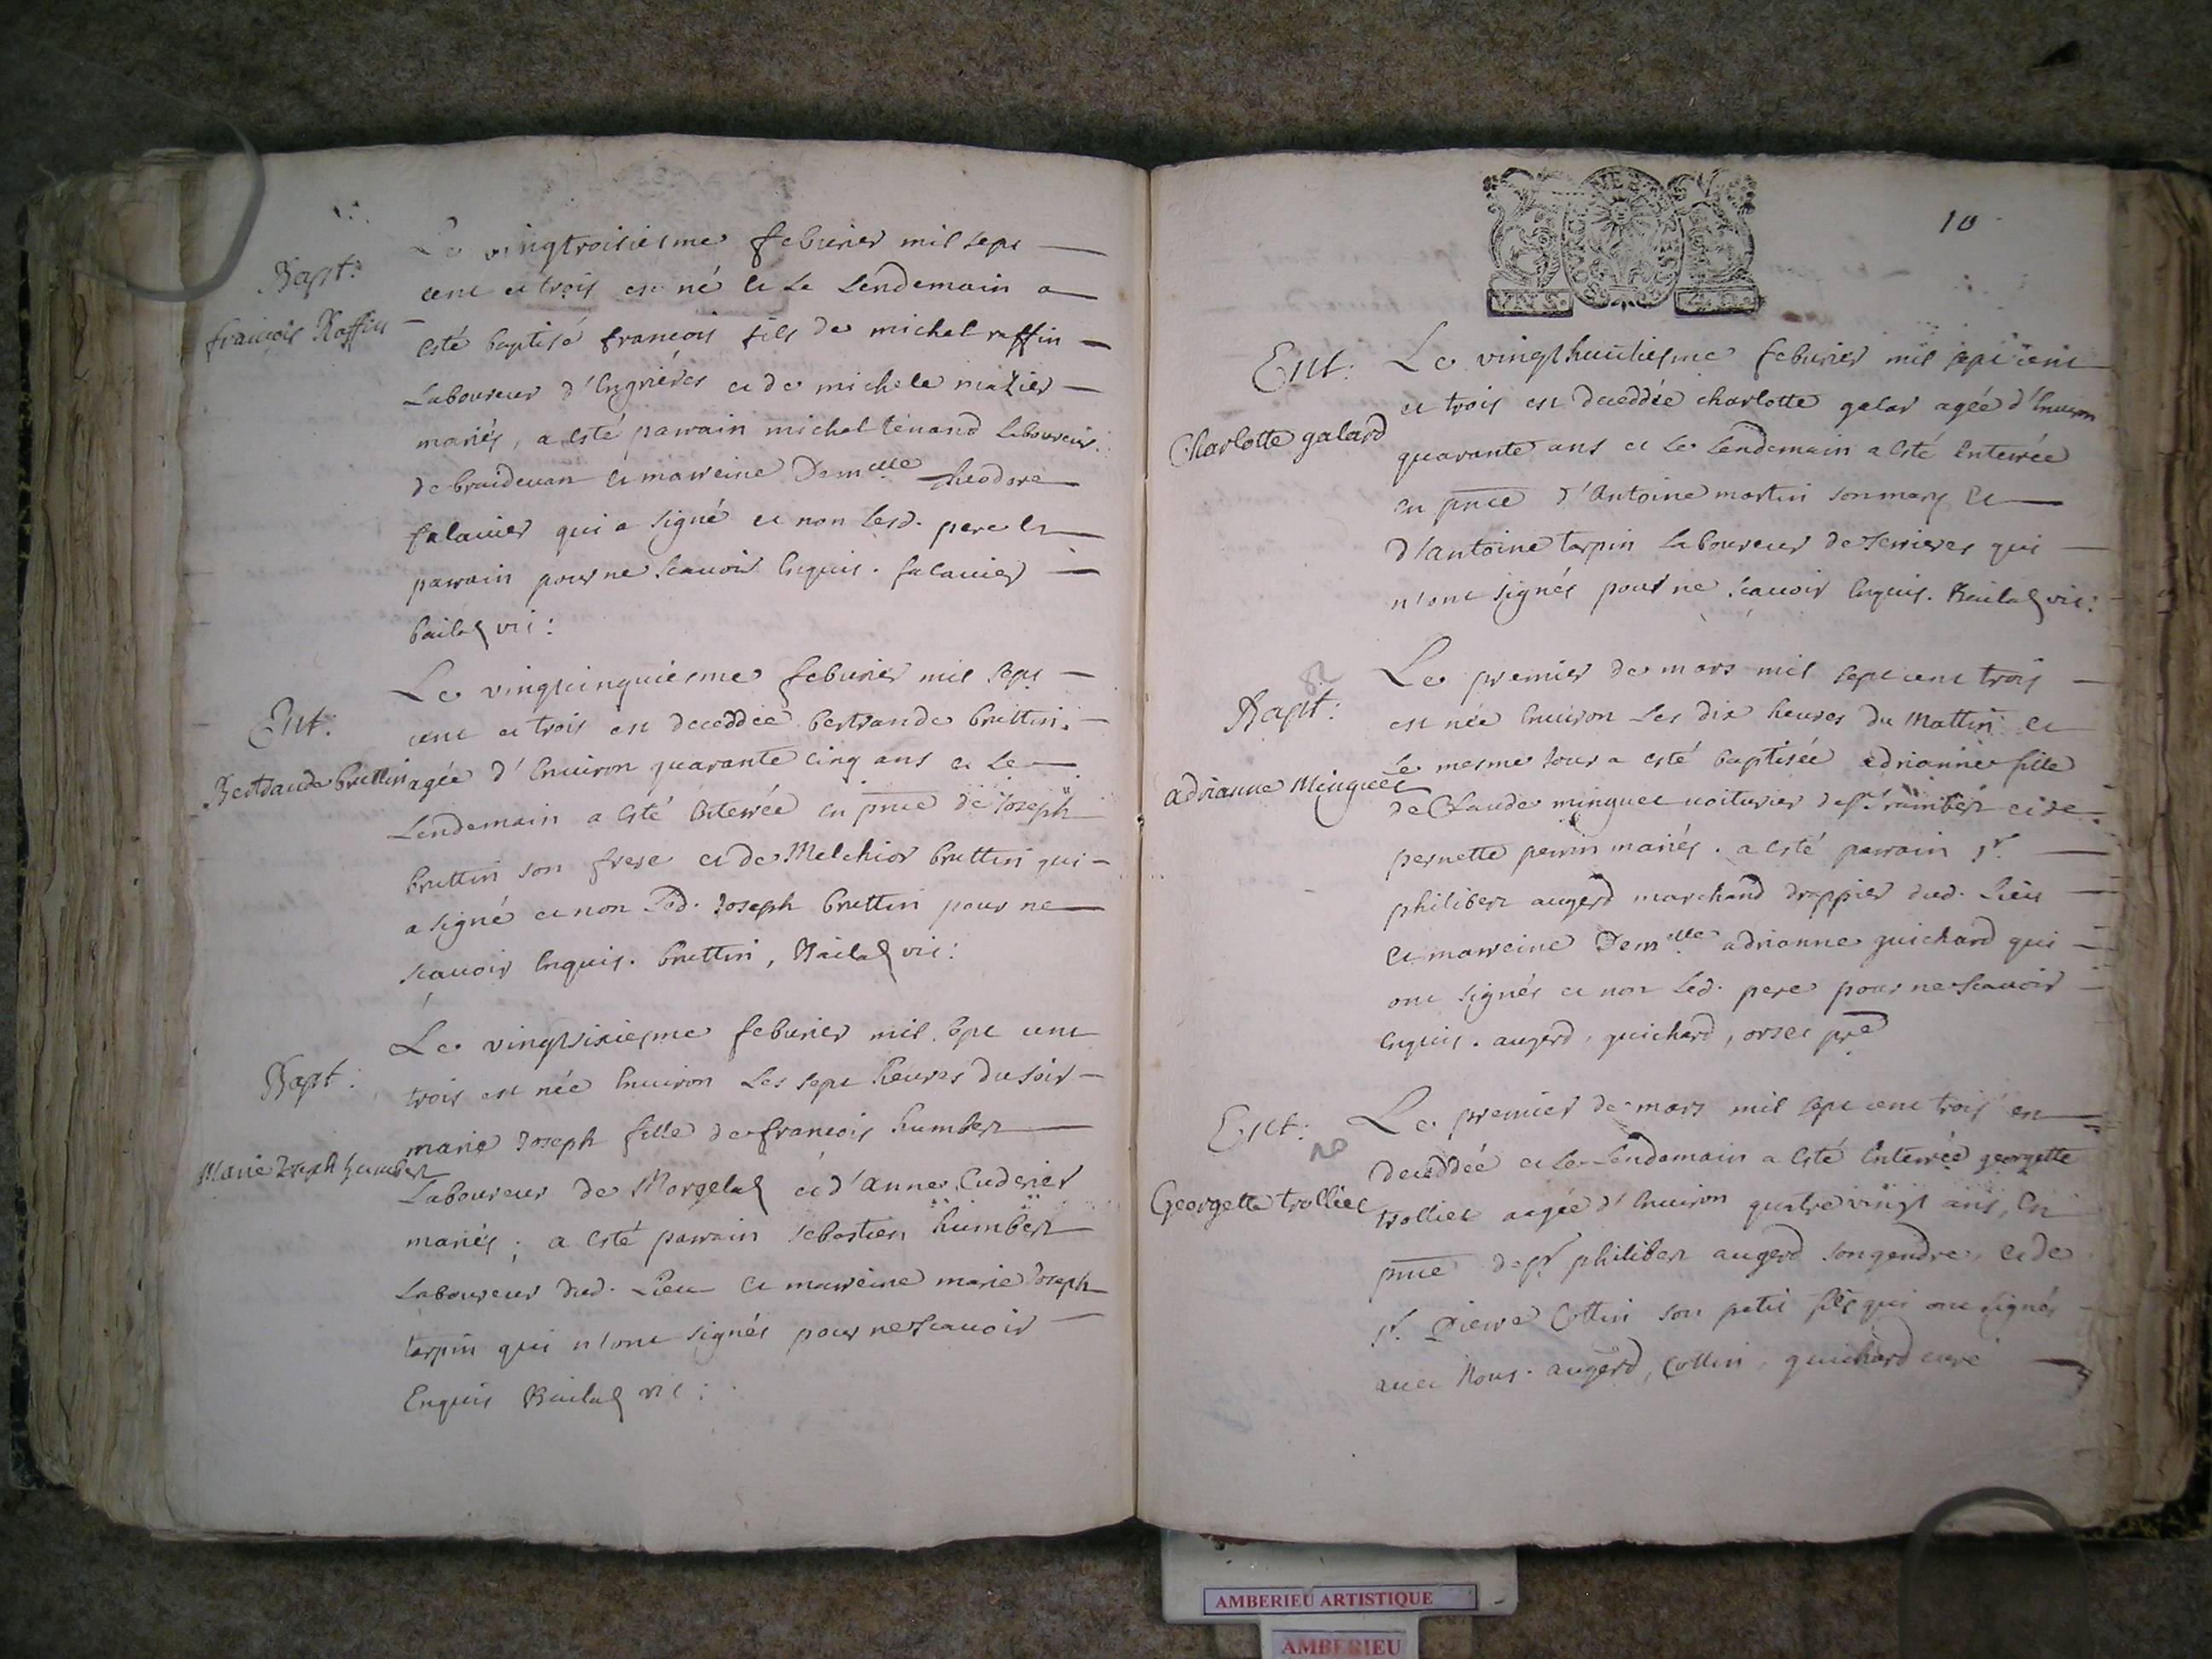 Bapt:
françois Raffin
Le vingtroisiesme feburier mil sept
cent et trois est né et le lendemain a
esté baptisé francois fils de michel raffin
Laboureur d'Engrieres et de michele mazier
mariés, a esté parrain michel tenand laboureur
de breidevan et marreine Demelle theodore
falavier qui a signé et non lesd. pere et
parrain pour ne scauoir enquis. falavier
bailat vic:
Ent:
Bertdande bruttin
Le vingtcinquiesme feburier mil sept
cent et trois est deceddée bertrande bruttin
agée d'enuiron quarante cinq ans et le
Lendemain a esté enterrée en pnce de Joseph
bruttin son frere et de Melchior bruttin qui
a signé et non led. Joseph bruttin pour ne
scauoir enquis. bruttin, Bailat vic:
Bapt:
Marie Joseph humbert
Le vingtsixiesme feburier mil sept cent
trois est née enuiron les sept heures du soir
marie Joseph fille de francois humbert
Laboureur de Morgelat et d'anne Cuderier
mariés; a esté parrain sebastien humbert
Laboureur dud. Lieu et marreine marie Joseph
tarpin qui n'ont signés pour ne scauoir
Enquis Bailat vic:
10
Ent:
Charlotte galard
Le vingthuitiesme feburier mil sept cent
et trois est deceddée charlotte galar agée d'enuiron
quarante ans et le lendemain a esté enterrée
en pnce d'Antoine martin son mary et
d'antoine tarpin laboureur de Serrieres qui
n'ont signés pour ne scauoir enquis. Bailat vic:
Bapt:
adrianne Minguet
Le premier de mars mil sept cent trois
est née enuiron les dix heures du Mattin et
le mesme jour a esté baptisée adrianne fille
de Claude minguet voiturier de st rambert et de
pernette perrin mariés. a esté parrain sr
philibert augerd marchand drappier dud. Lieu
et marreine Demelle adrianne guichard qui
ont signés et non led. pere pour ne scauoir
enquis. augerd, guichard, orset pre
Ent:
Georgette trolliet
Le premier de mars mil sept cent trois est
deceddée et le lendemain a esté enterrée georgette
trolliet aagée d'enuiron quatre vingt ans, en
pnce de sr philibert augerd son gendre, et de
sr Pierre Cottin son petit fils qui ont signés
auec Nous. augerd, Cottin, guichard curé
AMBERIEU ARTISTIQUE
AMBERIEU